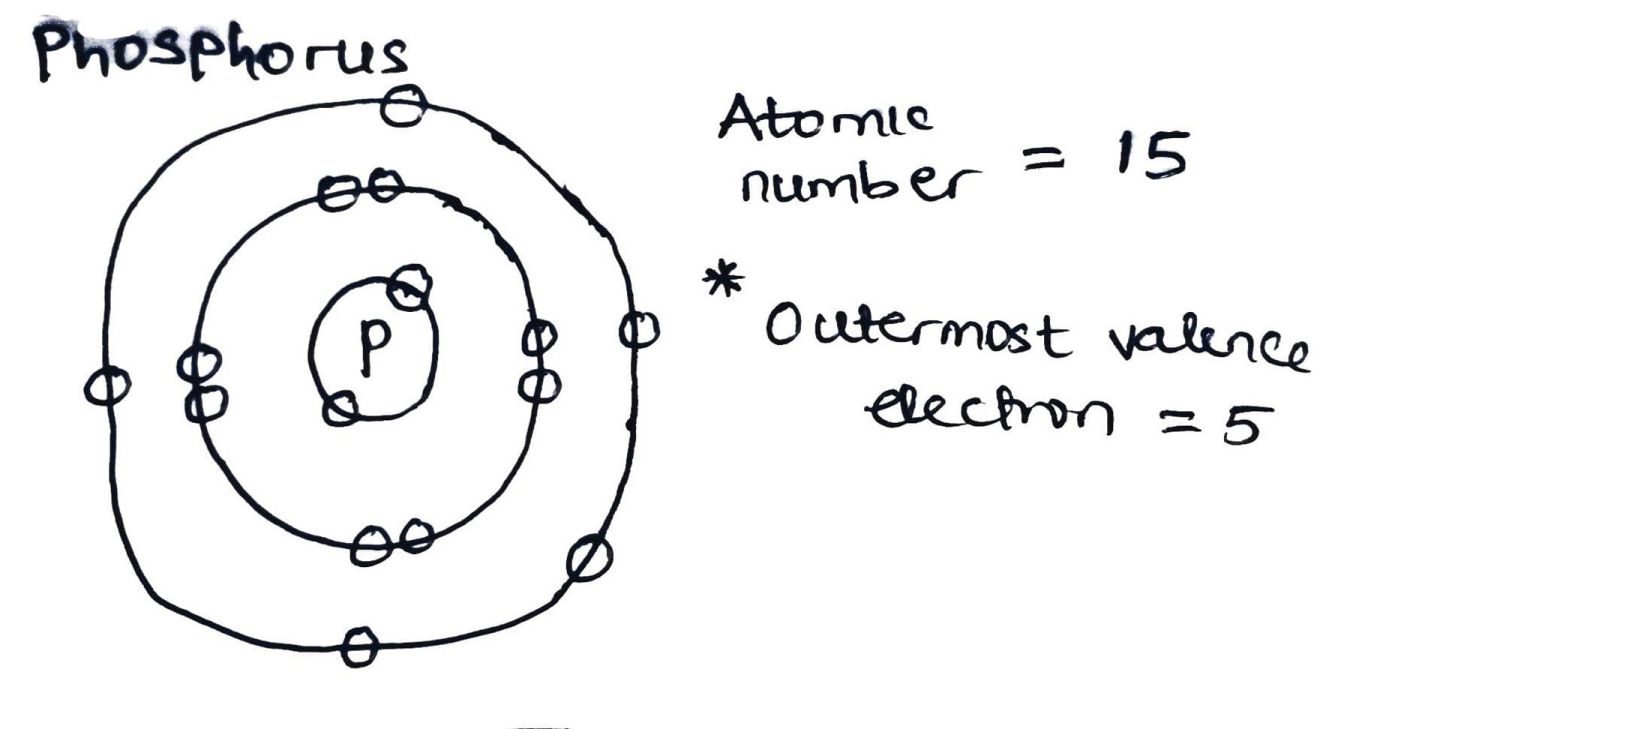 Phosphorus
P
Atomic
number = 15
* Outermost valence
electron = 5